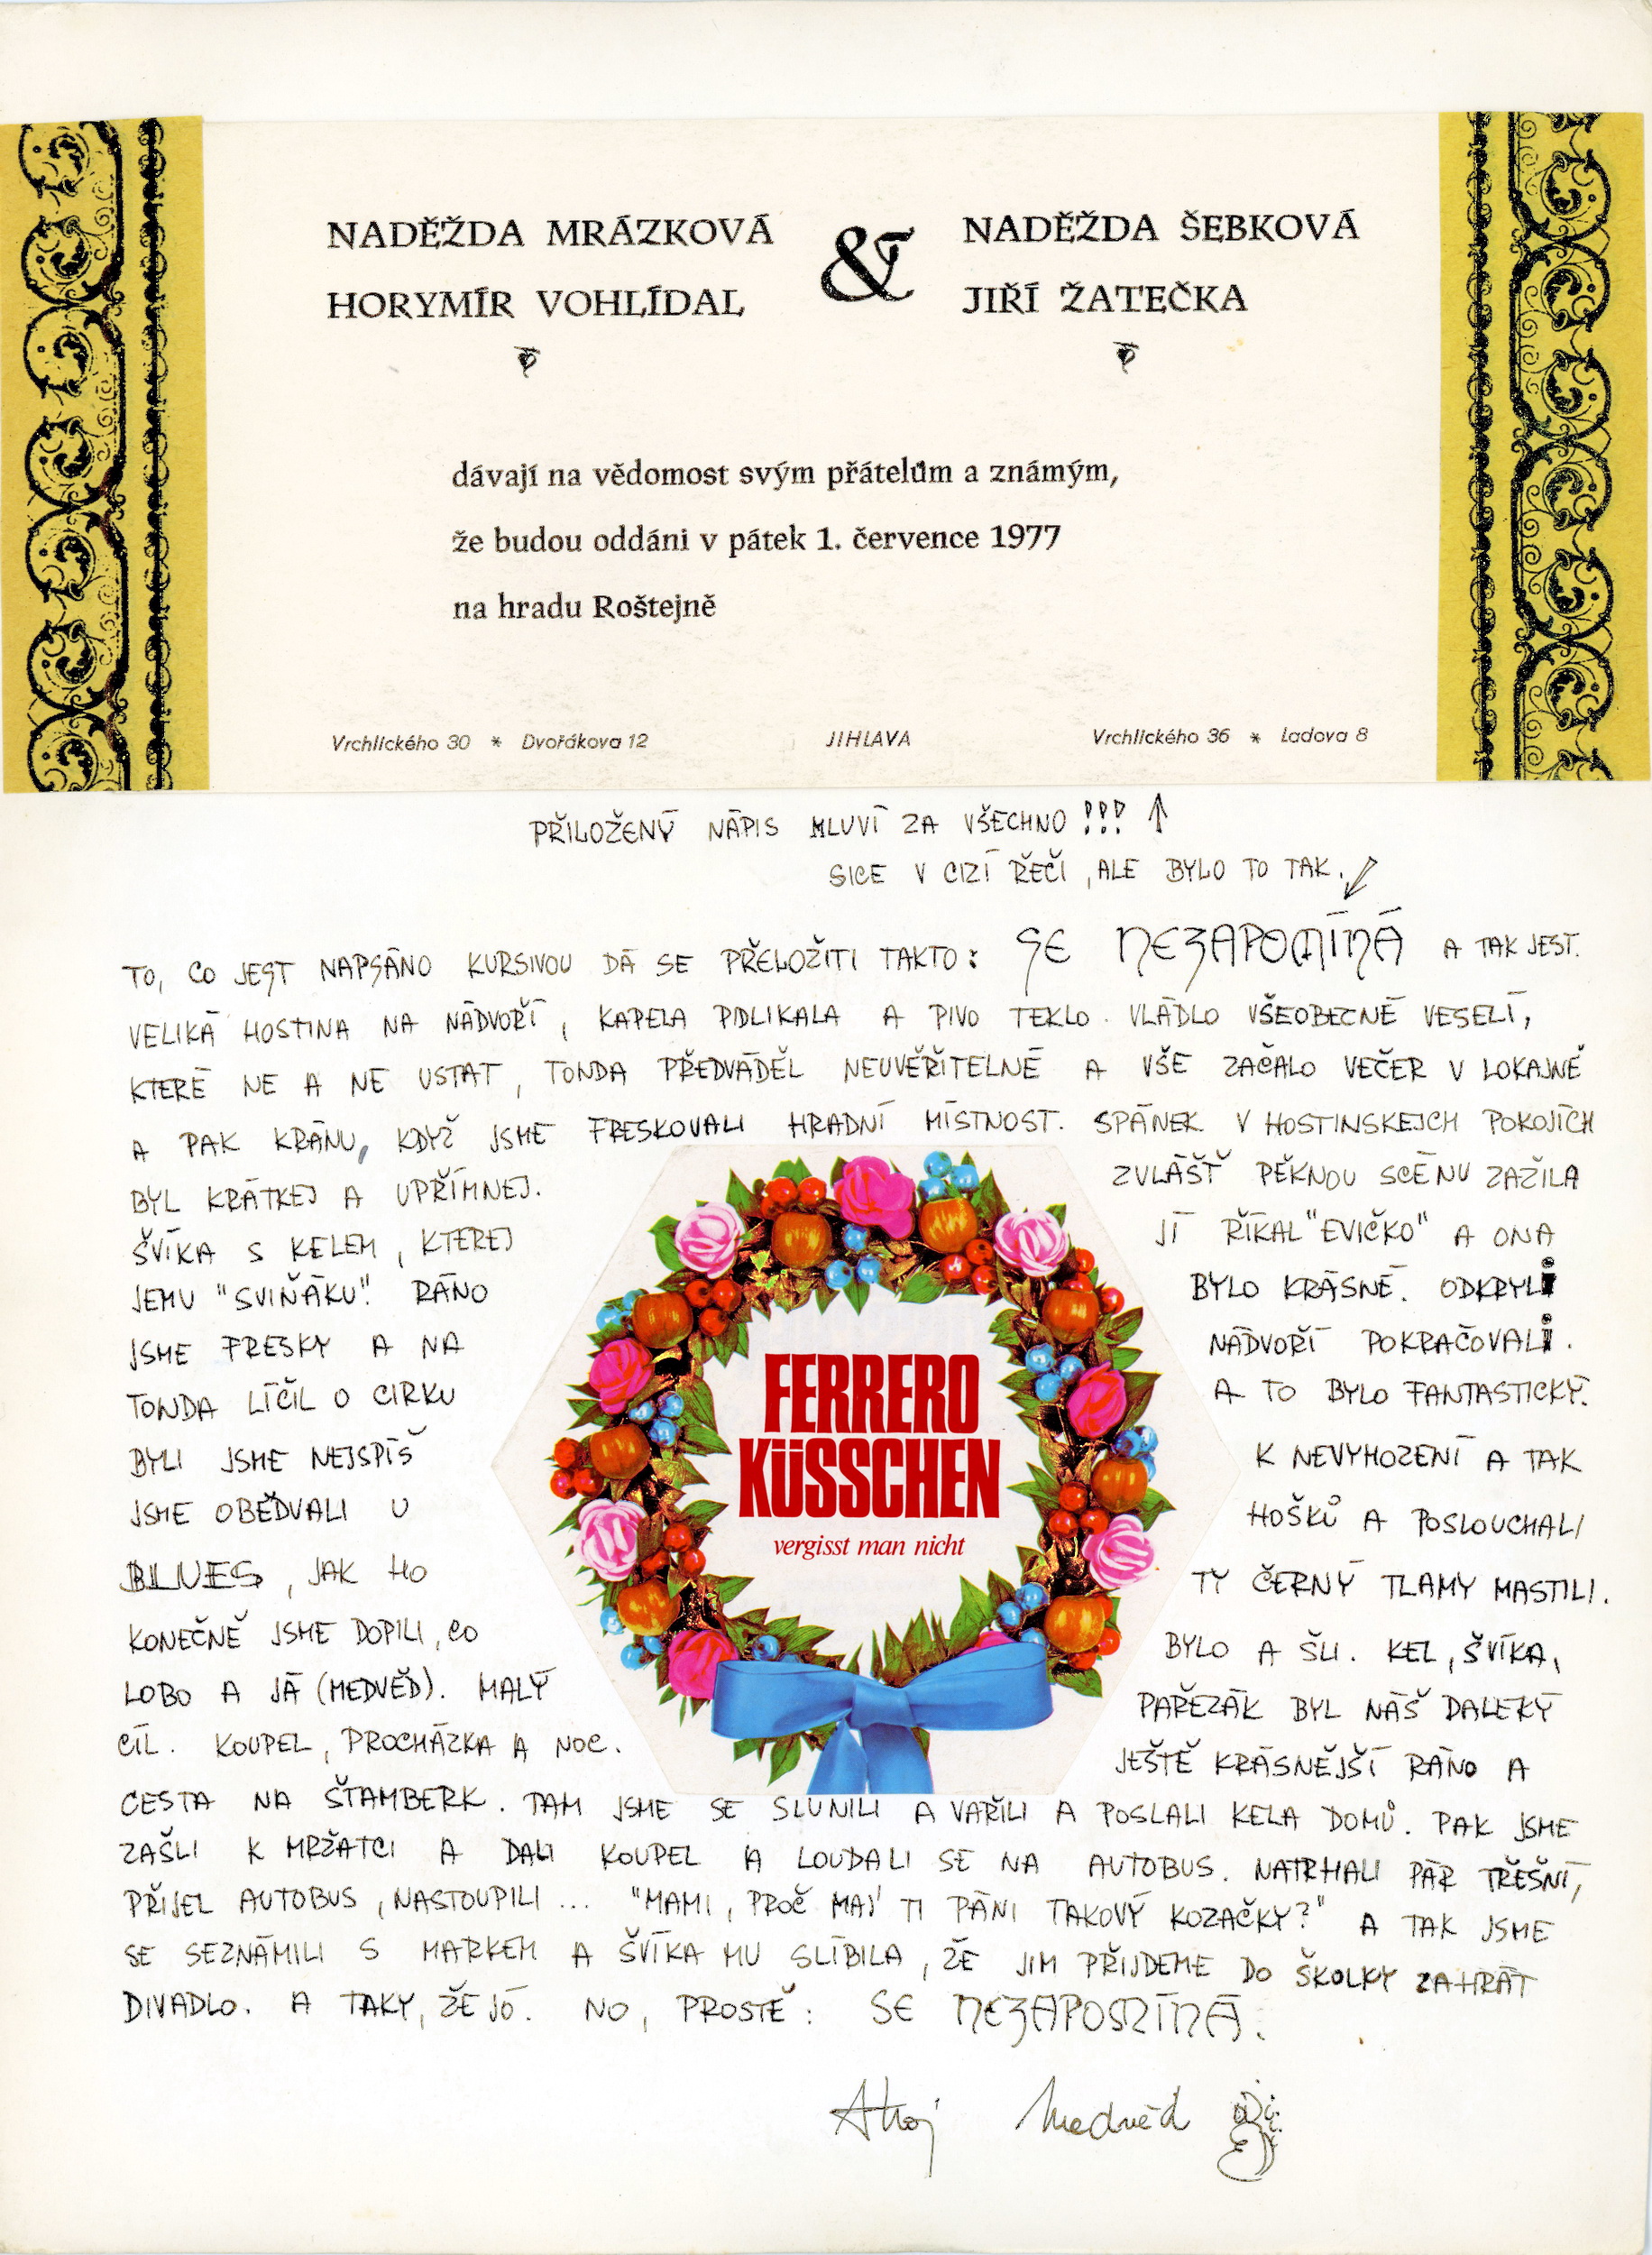 NADĚŽDA MRÁZKOVÁ & NADĚŽDA ŠEBKOVÁ
HORYMÍR VOHLÍDAL JIŘÍ ŽATEČKA
dávají na vědomost svým přátelům a známým,
že budou oddáni v pátek 1. července 1977
na hradu Roštejně
Vrchlického 30 * Dvořákova 12 JIHLAVA Vrchlického 36 * Ladova 8
PŘILOŽENÝ NÁPIS MLUVÍ ZA VŠECHNO !!! ↑
SICE V CIZÍ ŘEČI, ALE BYLO TO TAK.
TO, CO JEST NAPSÁNO KURSIVOU DÁ SE PŘELOŽITI TAKTO: SE NEZAPOMÍNÁ A TAK JEST.
VELIKÁ HOSTINA NA NÁDVOŘÍ, KAPELA PIDLIKALA A PIVO TEKLO. VLÁDLO VŠEOBECNÉ VESELÍ,
KTERÉ NE A NE USTAT, TONDA PŘEDVÁDĚL NEUVĚŘITELNÉ A VŠE ZAČALO VEČER V LOKAJNĚ
A PAK KRÁNU, KDYŽ JSME FRESKOVALI HRADNÍ MÍSTNOST. SPÁNEK V HOSTINSKEJCH POKOJÍCH
BYL KRÁTKEJ A UPŘÍMNEJ. ZVLÁŠŤ PĚKNOU SCÉNU ZAŽILA
ŠVÍKA S KELEM, KTEREJ JÍ ŘÍKAL "EVIČKO" A ONA
JEMU "SVIŇÁKU". RÁNO BYLO KRÁSNÉ. ODKRYLI
JSME FRESKY A NA NÁDVOŘÍ POKRAČOVALI.
TONDA LÍČIL O CIRKU A TO BYLO FANTASTICKÝ.
BYLI JSME NEJSPÍŠ K NEVYHOZENÍ A TAK
JSME OBĚDVALI U HOŠKŮ A POSLOUCHALI
BLUES, JAK HO TY ČERNÝ TLAMY MASTILI.
KONEČNĚ JSME DOPILI, CO BYLO A ŠLI. KEL, ŠVÍKA,
LOBO A JÁ (MEDVĚD). MALÝ PAŘEZÁK BYL NÁŠ DALEKÝ
CÍL. KOUPEL, PROCHÁZKA A NOC. JEŠTĚ KRÁSNĚJŠÍ RÁNO A
CESTA NA ŠTAMBERK. TAM JSME SE SLUNILI A VAŘILI A POSLALI KELA DOMŮ. PAK JSME
ZAŠLI K MRŽATCI A DALI KOUPEL A LOUDALI SE NA AUTOBUS. NATRHALI PÁR TŘEŠNÍ,
PŘIJEL AUTOBUS, NASTOUPILI... "MAMI, PROČ MAJ' TI PÁNI TAKOVÝ KOZAČKY?" A TAK JSME
SE SEZNÁMILI S MARKEM A ŠVÍKA MU SLÍBILA, ŽE JIM PŘIJDEME DO ŠKOLKY ZAHRÁT
DIVADLO. A TAKY, ŽE JÓ. NO, PROSTĚ: SE NEZAPOMÍNÁ.
Ahoj Medvěd
FERRERO
KÜSSCHEN
vergisst man nicht